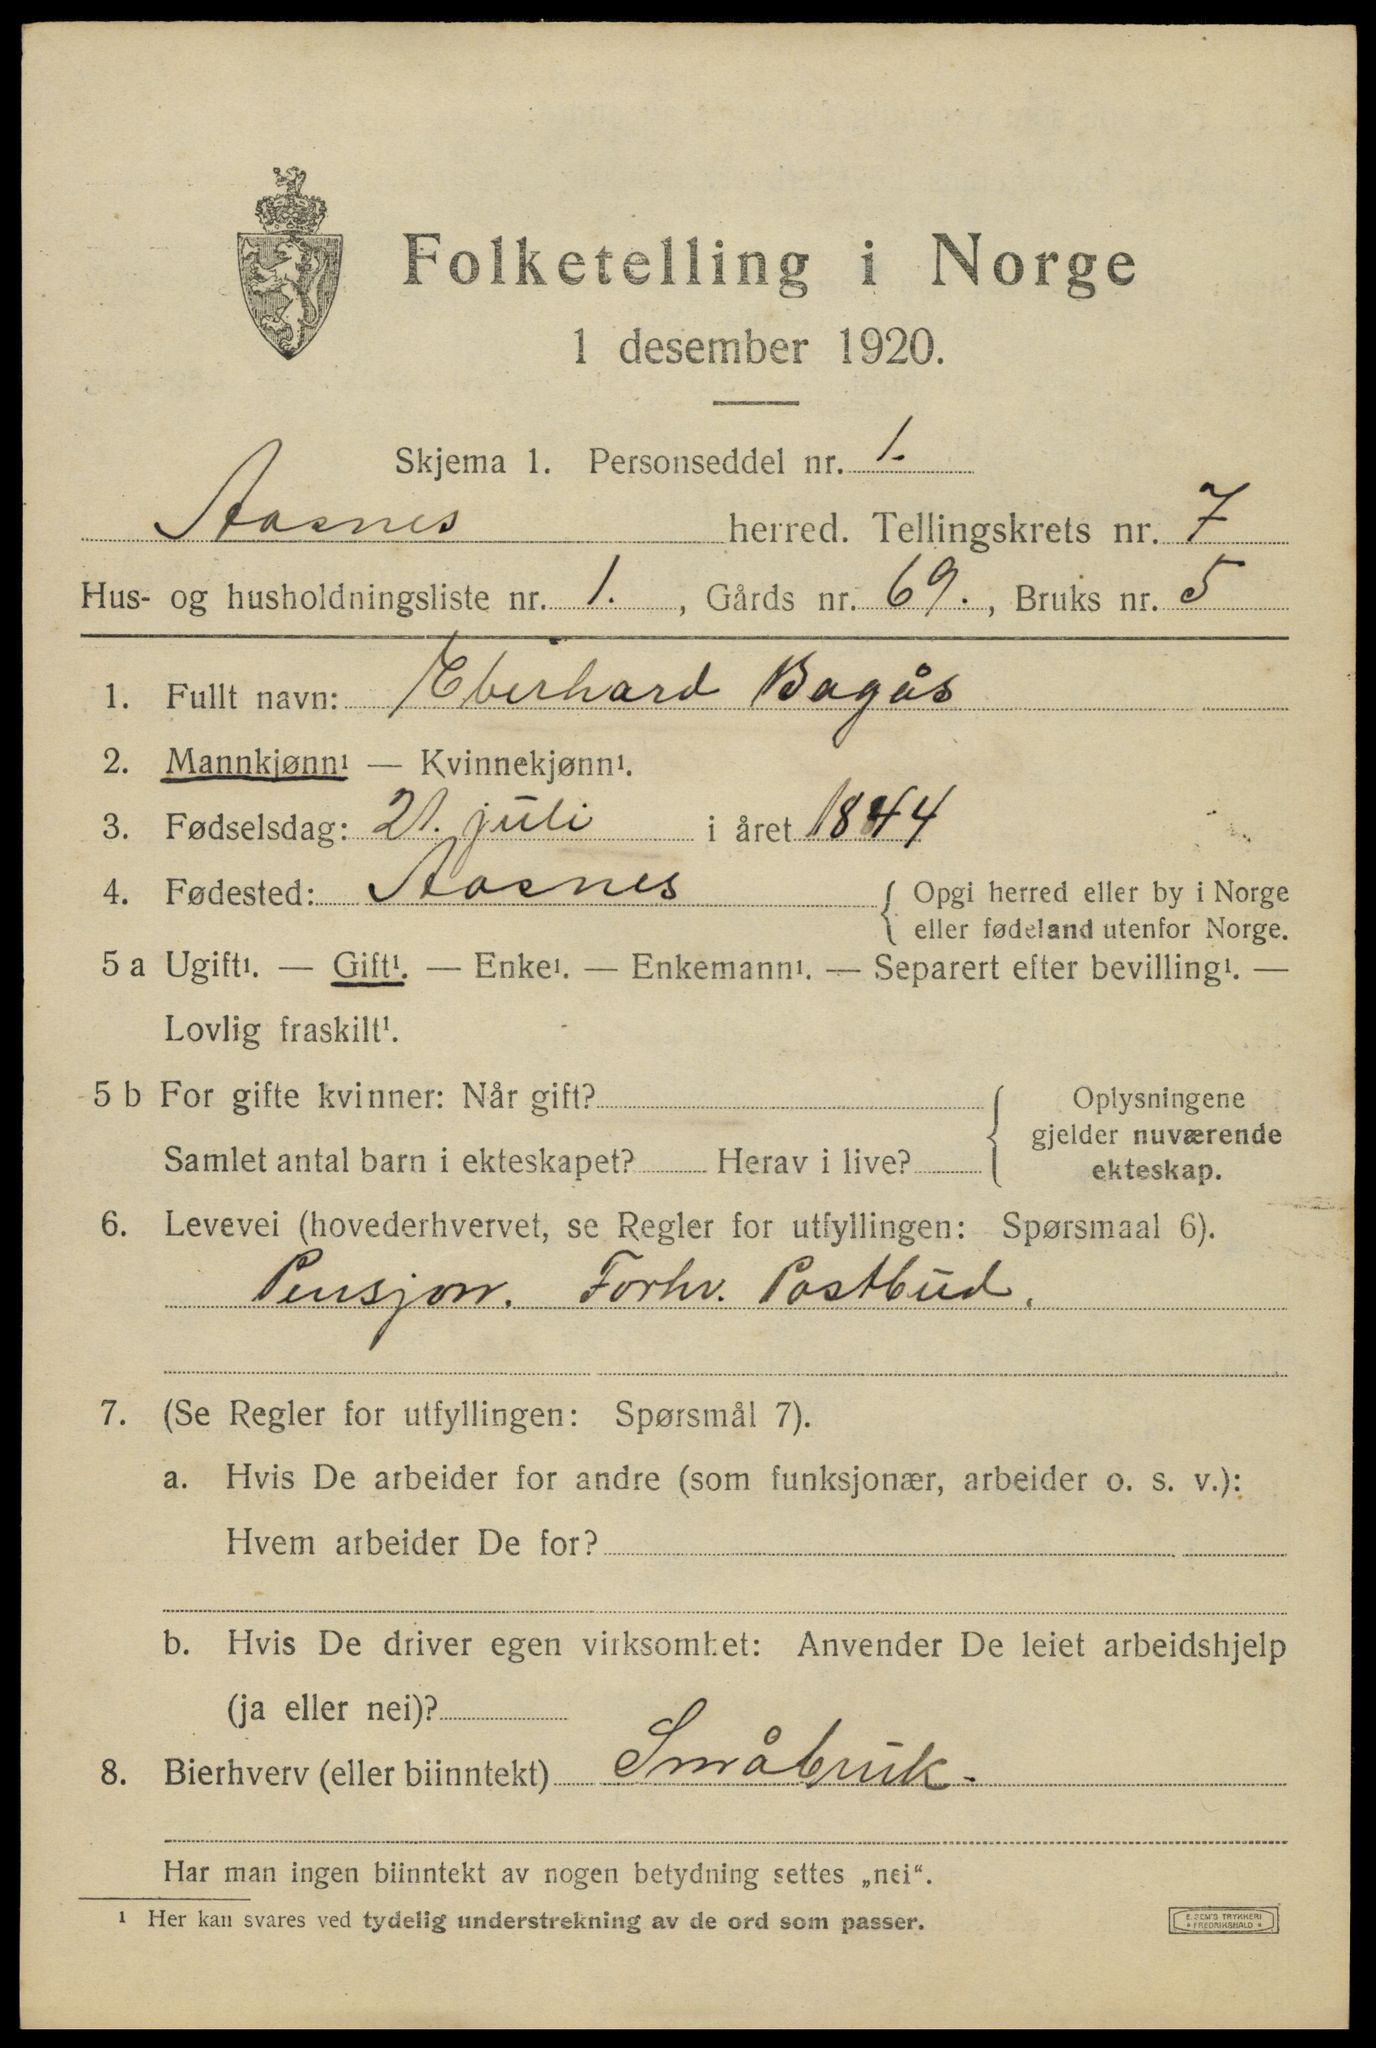 Folketelling i Norge
1 desember 1920.
Skjema 1. Personseddel nr. 1.
Aasnes herred. Tellingskrets nr. 7
Hus- og husholdningsliste nr. 1., Gårds nr. 69., Bruks nr. 5
1. Fullt navn: Eberhard Bagås
2. Mannkjønn¹ — Kvinnekjønn¹.
3. Fødselsdag: 21. juli i året 1844
4. Fødested: Aasnes { Opgi herred eller by i Norge
eller fødeland utenfor Norge.
5 a Ugift¹. — Gift¹. — Enke¹. — Enkemann¹. — Separert efter bevilling¹. —
Lovlig fraskilt¹.
5 b For gifte kvinner: Når gift?
Samlet antal barn i ekteskapet? Herav i live?
{ Oplysningene
gjelder nuværende
ekteskap.
6. Levevei (hovederhvervet, se Regler for utfyllingen: Spørsmaal 6).
Pensjon. Forhv. Postbud.
7. (Se Regler for utfyllingen: Spørsmål 7).
a. Hvis De arbeider for andre (som funksjonær, arbeider o. s. v.):
Hvem arbeider De for?
b. Hvis De driver egen virksomhet: Anvender De leiet arbeidshjelp
(ja eller nei)?
8. Bierhverv (eller biinntekt) Småbruk.
Har man ingen biinntekt av nogen betydning settes „nei“.
¹ Her kan svares ved tydelig understrekning av de ord som passer.
E. SEM'S TRYKKERI
* FREDRIKSHALD *